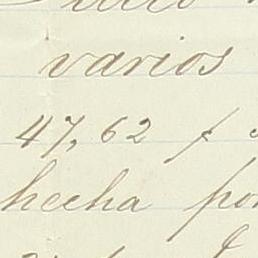 varios
47,62 f
hecha por